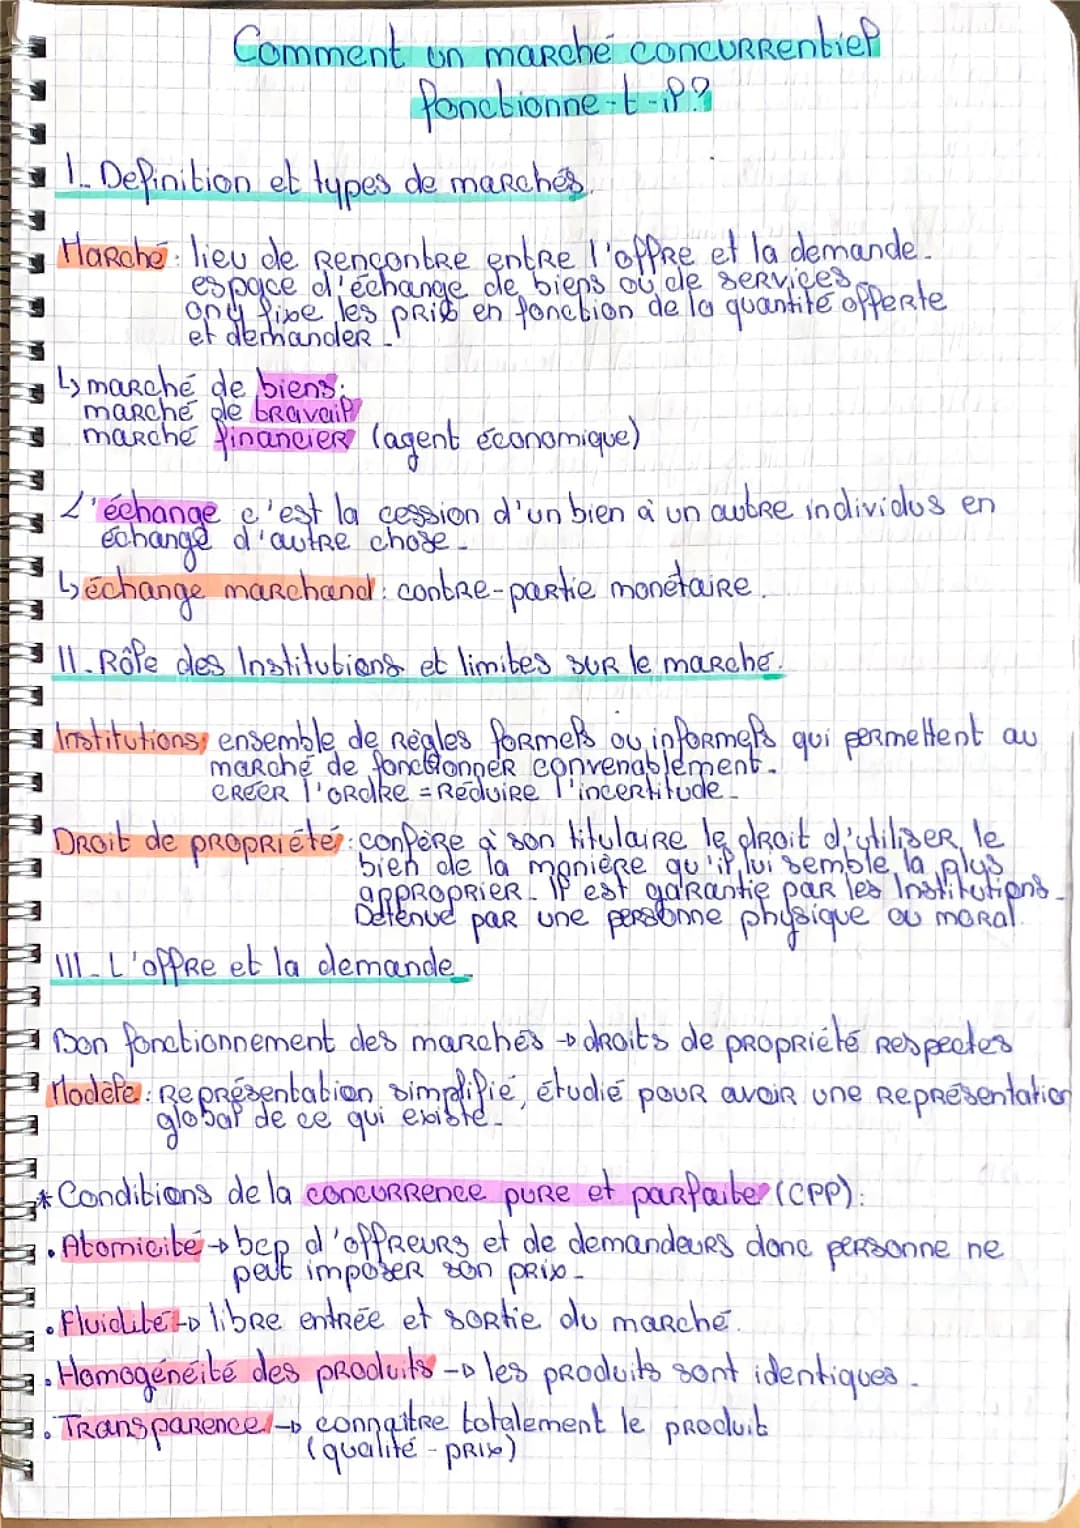 Comment un marché concurrentiel
fonctionne-t-il?
I. Definition et types de marchés.
Marché: lieu de rencontre entre l'offre et la demande.
espace d'échange de biens ou de services
on y fixe les prix en fonction de la quantité offerte
et demander.
↳ marché de biens;
marché de travail
marché financier (agent économique)
L'échange c'est la cession d'un bien à un autre individus en
échange d'autre chose.
↳ échange marchand: contre-partie monétaire.
II. Rôle des Institutions et limites sur le marché.
Institutions: ensemble de règles formels ou informels qui permettent au
marché de fonctionner convenablement.
créer l'ordre = Réduire l'incertitude.
Droit de propriété: confère à son titulaire le droit d'utiliser le
bien de la manière qu'il lui semble la plus
approprier. Il est garantie par les Institutions.
Détenue par une personne physique ou moral.
III. L'offre et la demande.
Bon fonctionnement des marchés → droits de propriété respectés
Modèle: Représentation simplifié, étudié pour avoir une représentation
global de ce qui existe.
* Conditions de la concurrence pure et parfaite (CPP):
• Atomicité → bcp d'offreurs et de demandeurs donc personne ne
peut imposer son prix.
• Fluidité → libre entrée et sortie du marché.
• Homogénéité des produits → les produits sont identiques.
• Transparence → connaître totalement le produit
(qualité - prix)